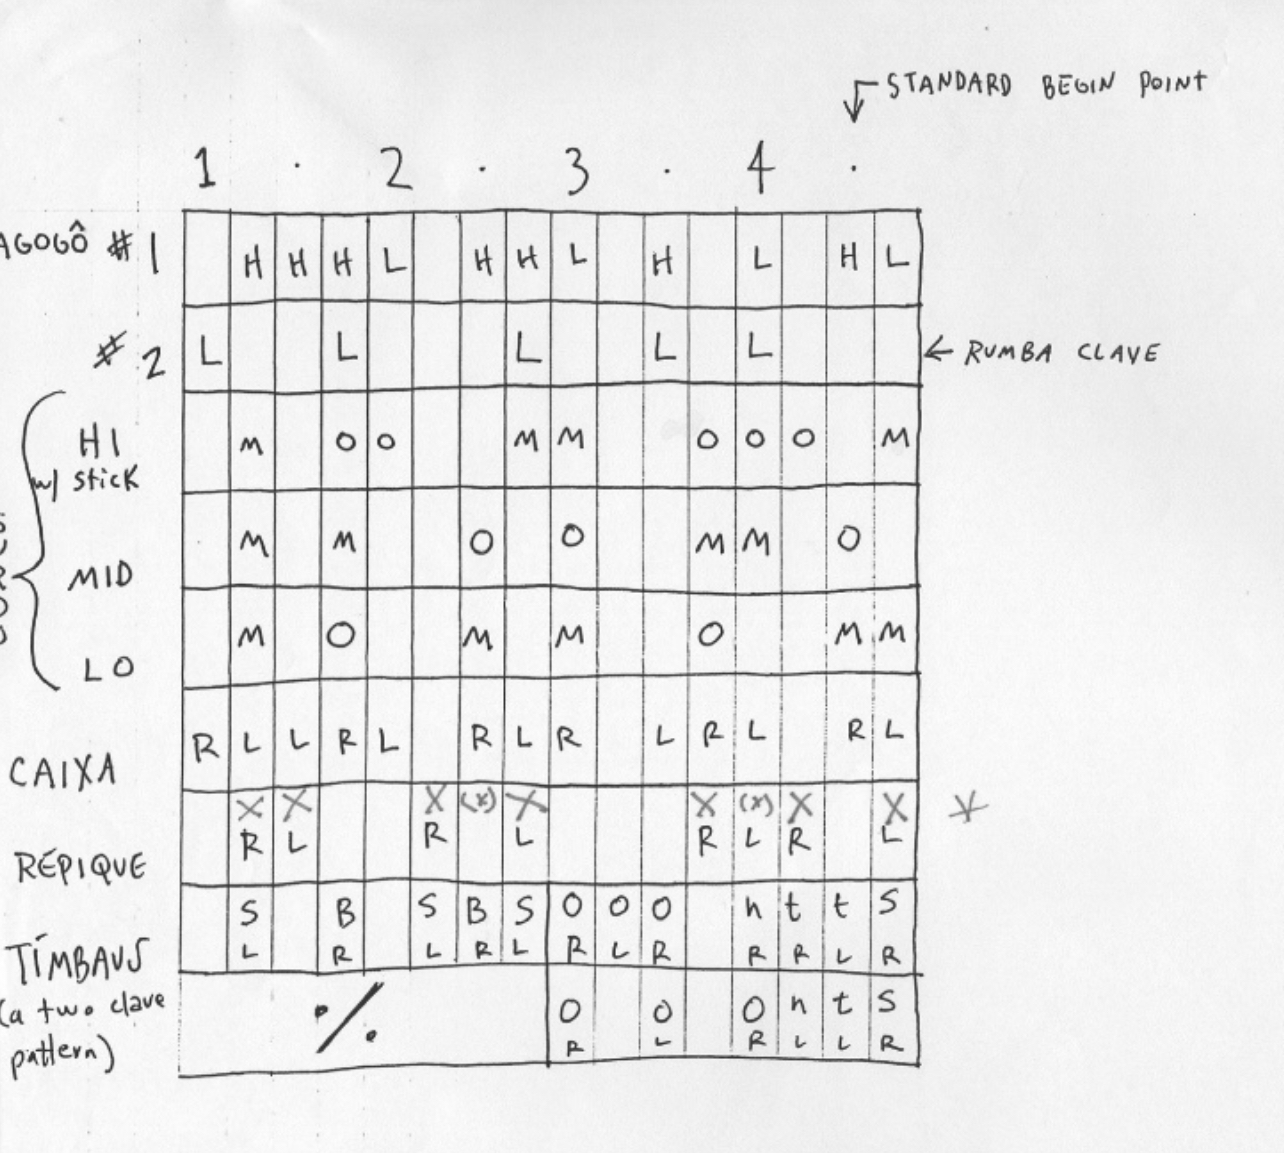 STANDARD BEGIN POINT
1 · 2 · 3 · 4 ·
AGOGÔ #1 H H H L H H L H L H L
#2 L L L L L ← RUMBA CLAVE
HI M O O M M O O O M
w/ stick
MID M M O O M M O
LO M O M M O M M
CAIXA R L L R L R L R L R L R L
X X X (x) X X (x) X X *
RÉPIQUE R L R L R L R L
S B S B S O O O n t t S
TÍMBAUS L R L R L R L R R R L R
(a two clave ٪ O O O n t S
pattern) R L R L L R